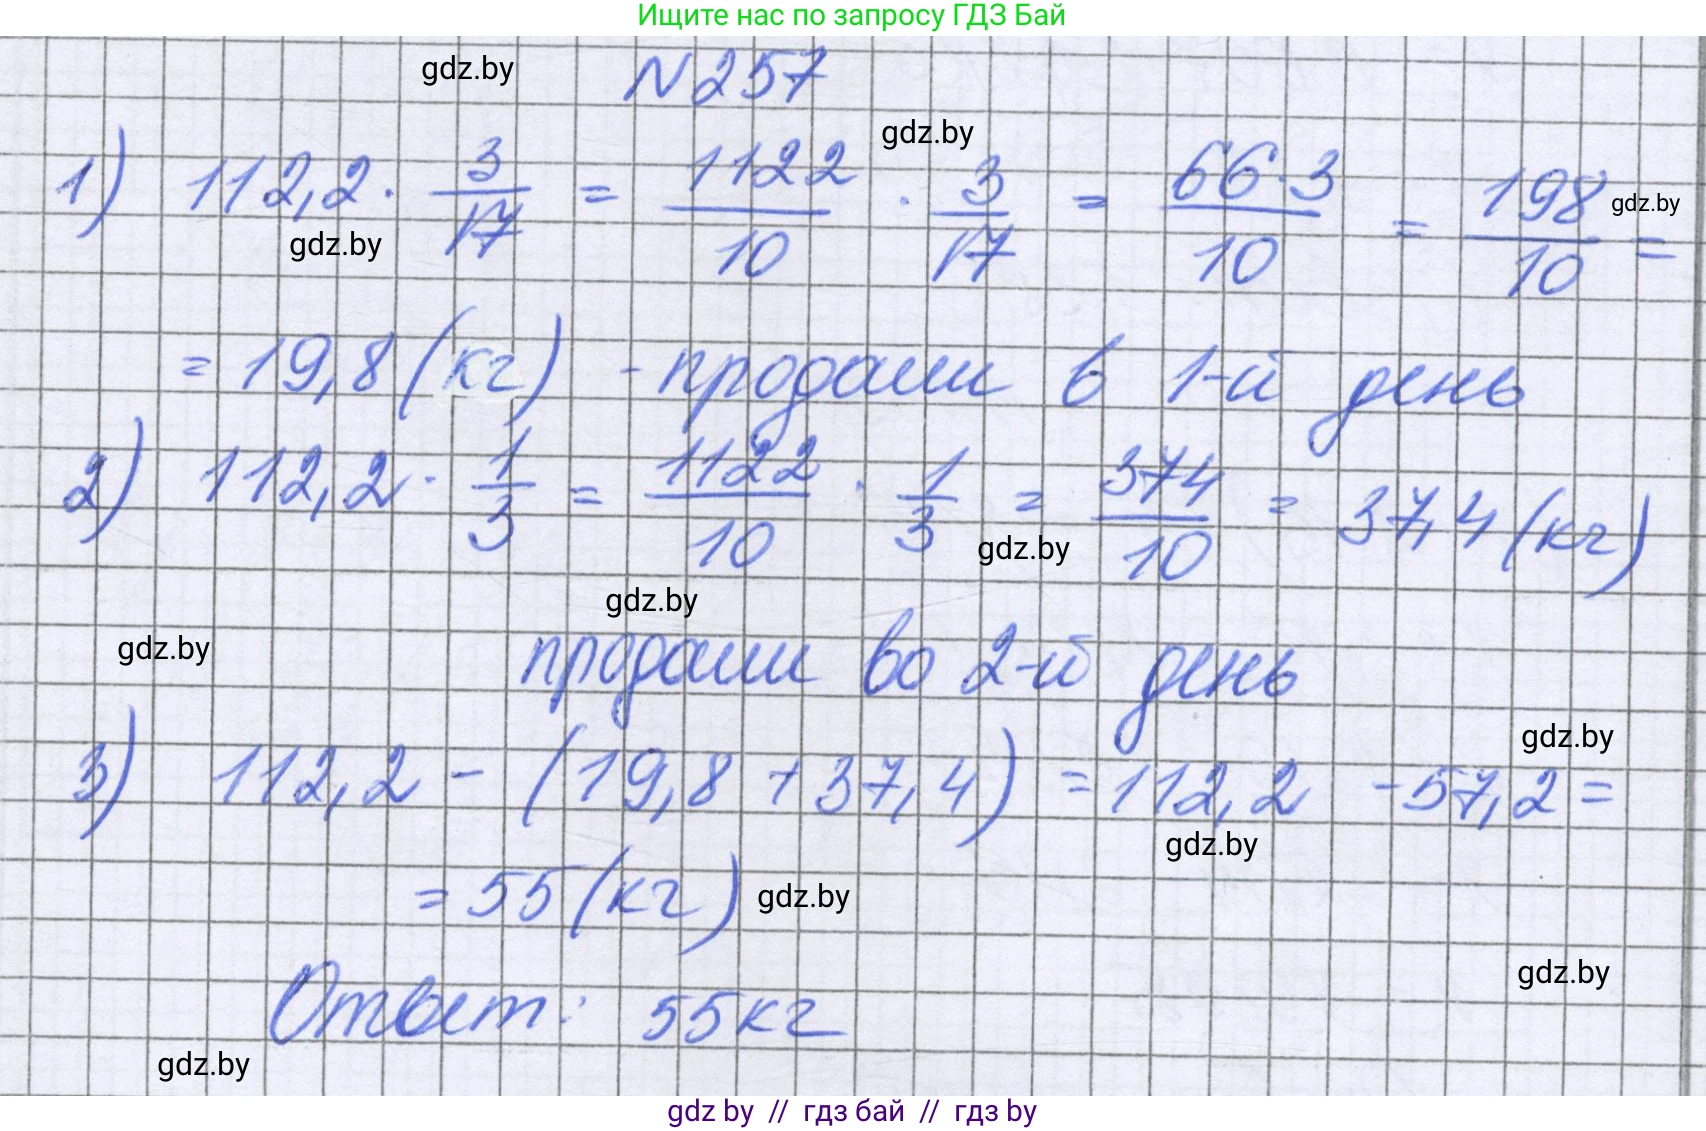 Ищите нас по запросу ГДЗ Бай
gdz.by
N 257
gdz.by
1) 112,2 · 3/17 = 1122/10 · 3/17 = 66·3/10 = 198/10 =
gdz.by
gdz.by
= 19,8 (кг) - продали в 1-й день
2) 112,2 · 1/3 = 1122/10 · 1/3 = 374/10 = 37,4 (кг)
gdz.by
gdz.by
gdz.by
продали во 2-й день
gdz.by
3) 112,2 - (19,8 + 37,4) = 112,2 - 57,2 =
gdz.by
= 55 (кг)
gdz.by
gdz.by
Ответ: 55 кг
gdz.by
gdz by // гдз бай // гдз by